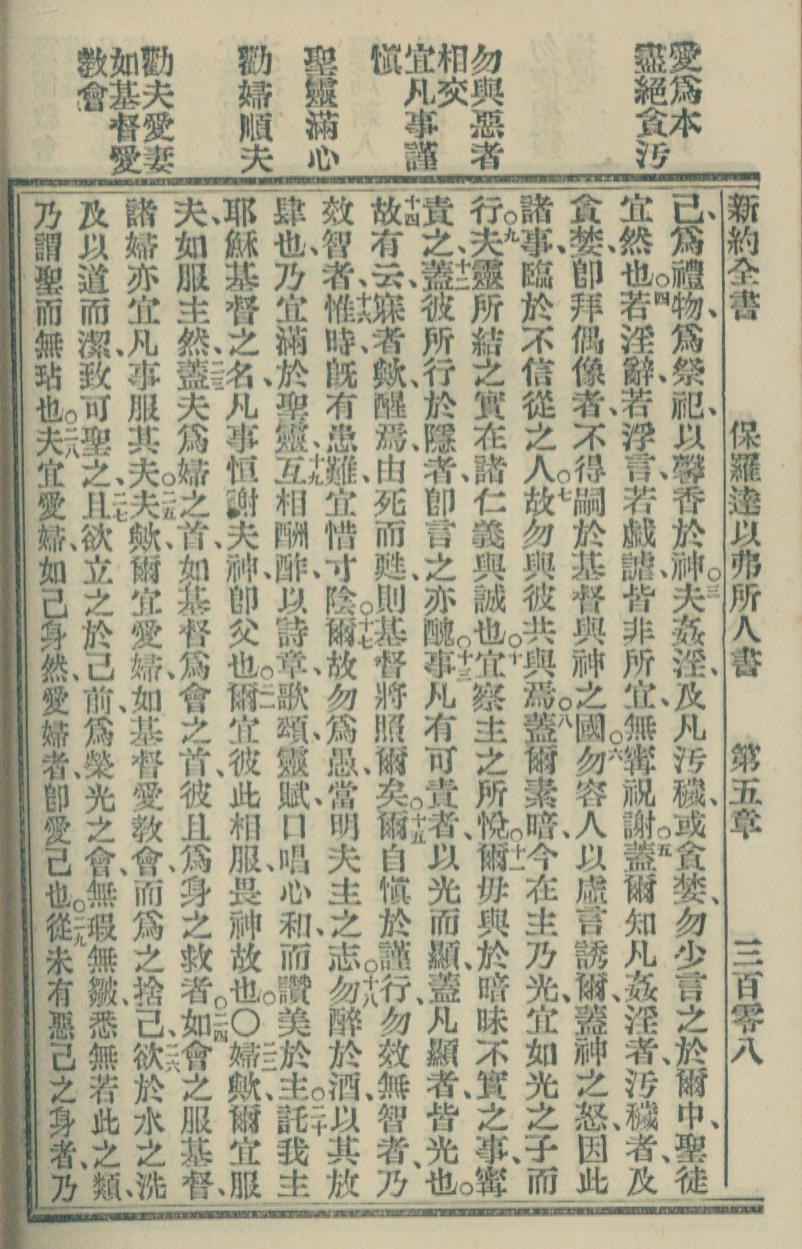 愛爲本
盡絕貪污
勿與惡者
相交
宜凡事謹
愼
聖靈滿心
勸婦順夫
勸夫愛妻
如基督愛
敎會
新約全書 保羅達以弗所人書 第五章 三百零八
己、爲禮物、爲祭祀、以馨香於神。三夫姦淫、及凡污穢、或貪婪、勿少言之於爾中、聖徒
宜然也。四若淫辭、若浮言、若戲謔、皆非所宜、無寗祝謝。五蓋爾知凡姦淫者、污穢者、及
貪婪、卽拜偶像者、不得嗣於基督與神之國。六勿容人以虛言誘爾、蓋神之怒、因此
諸事、臨於不信從之人。七故勿與彼共與焉。八蓋爾素暗、今在主乃光、宜如光之子而
行。九夫靈所結之實、在諸仁義與誠也。十宜察主之所悅。十一爾毋與於暗昧不實之事、寗
責之、十二蓋彼所行於隱者、卽言之亦醜。十三事凡有可責者、以光而顯、蓋凡顯者、皆光也。
十四故有云、寐者歟、醒焉、由死而甦、則基督將照爾矣。十五爾自愼於謹行、勿效無智者、乃
效智者、十六惟時、旣有患難、宜惜寸陰。十七爾故勿爲愚、當明夫主之志。十八勿醉於酒、以其放
肆也、乃宜滿於聖靈、十九互相酬酢、以詩章、歌頌、靈賦、口唱心和、而讚美於主。二十託我主
耶穌基督之名、凡事恒謝夫神、卽父也。二一爾宜彼此相服、畏神故也。〇二二婦歟、爾宜服
夫、如服主然、二三蓋夫爲婦之首、如基督爲會之首、彼且爲身之救者。二四如會之服基督、
諸婦亦宜凡事服其夫。二五夫歟、爾宜愛婦、如基督愛敎會、而爲之捨己、二六欲於水之洗
及以道而潔、致可聖之、二七且欲立之於己前、爲榮光之會、無瑕無皺、悉無若此之類、
乃謂聖而無玷也。二八夫宜愛婦、如己身然、愛婦者、卽愛己也。二九從未有惡己之身者、乃